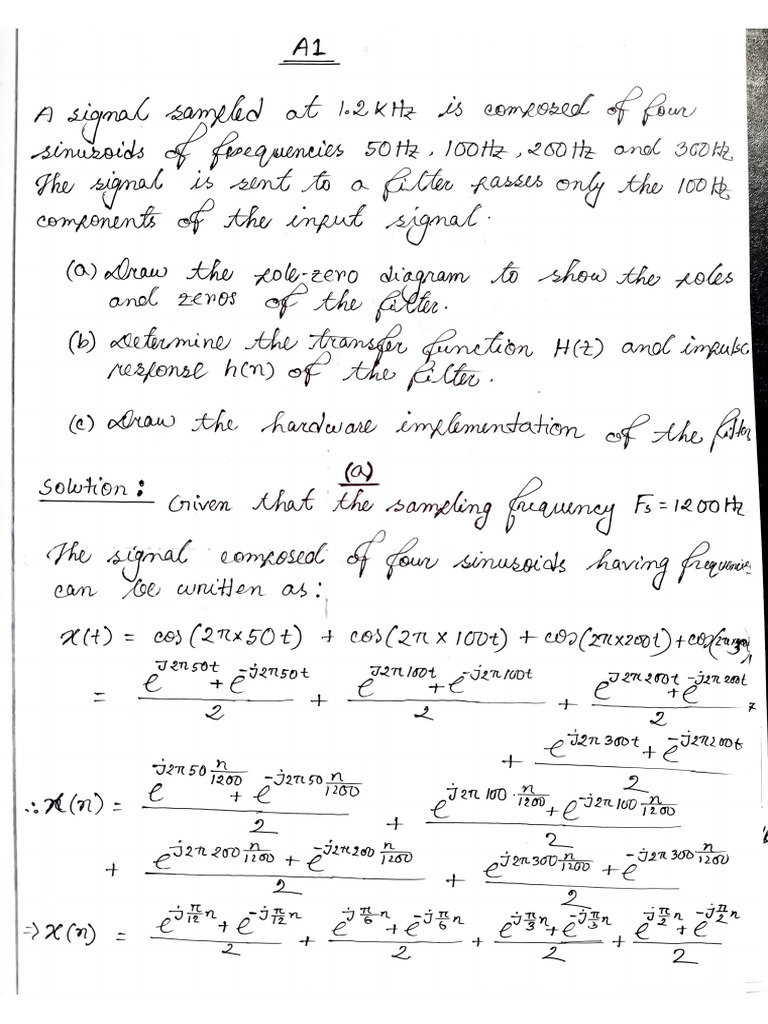 A1
A signal sampled at 1.2KHz is composed of four
sinusoids of frequencies 50Hz, 100Hz, 200Hz and 300Hz
The signal is sent to a filter passes only the 100Hz
components of the input signal.
(a) Draw the pole-zero diagram to show the poles
and zeros of the filter.
(b) Determine the transfer function H(z) and impulse
response h(n) of the filter.
(c) Draw the hardware implementation of the filter
(a)
Solution: Given that the sampling frequency Fs = 1200Hz
The signal composed of four sinusoids having frequencies
can be written as:
x(t) = cos(2π×50t) + cos(2π×100t) + cos(2π×200t) + cos(2π×300t)
= (e^{j2π50t} + e^{-j2π50t})/2 + (e^{j2π100t} + e^{-j2π100t})/2 + (e^{j2π200t} + e^{-j2π200t})/2
+ (e^{j2π300t} + e^{-j2π200t})/2
∴ x(n) = (e^{j2π50 n/1200} + e^{-j2π50 n/1200})/2 + (e^{j2π100·n/1200} + e^{-j2π100 n/1200})/2
+ (e^{j2π200 n/1200} + e^{-j2π200 n/1200})/2 + (e^{j2π300 n/1200} + e^{-j2π300 n/1200})/2
⇒ x(n) = (e^{jπ/12 n} + e^{-jπ/12 n})/2 + (e^{jπ/6 n} + e^{-jπ/6 n})/2 + (e^{jπ/3 n} + e^{-jπ/3 n})/2 + (e^{jπ/2 n} + e^{-jπ/2 n})/2